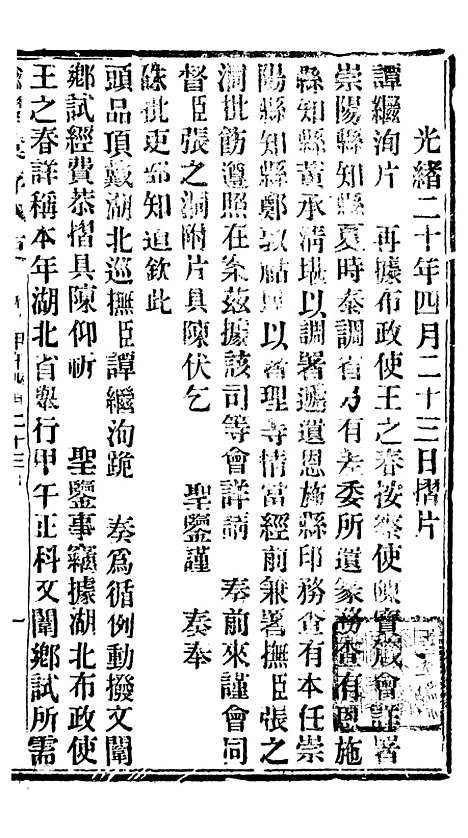 光緒二十年四月二十三日摺片
譚繼洵片 再據布政使王之春按察使陳寶箴會詳署
崇陽縣知縣夏時泰調省另有差委所遺篆務查有恩施
縣知縣黃承清堪以調署遞遺恩施縣印務查有本任崇
陽縣知縣鄭敦祜堪以署理等情當經前兼署撫臣張之
洞批飭遵照在案茲據該司等會詳請 奏前來謹會同
督臣張之洞附片具陳伏乞 聖鑒謹 奏奉
硃批吏部知道欽此
頭品頂戴湖北巡撫臣譚繼洵跪 奏爲循例動撥文闈
鄉試經費恭摺具陳仰祈 聖鑒事竊據湖北布政使
王之春詳稱本年湖北省舉行甲午正科文闈鄉試所需